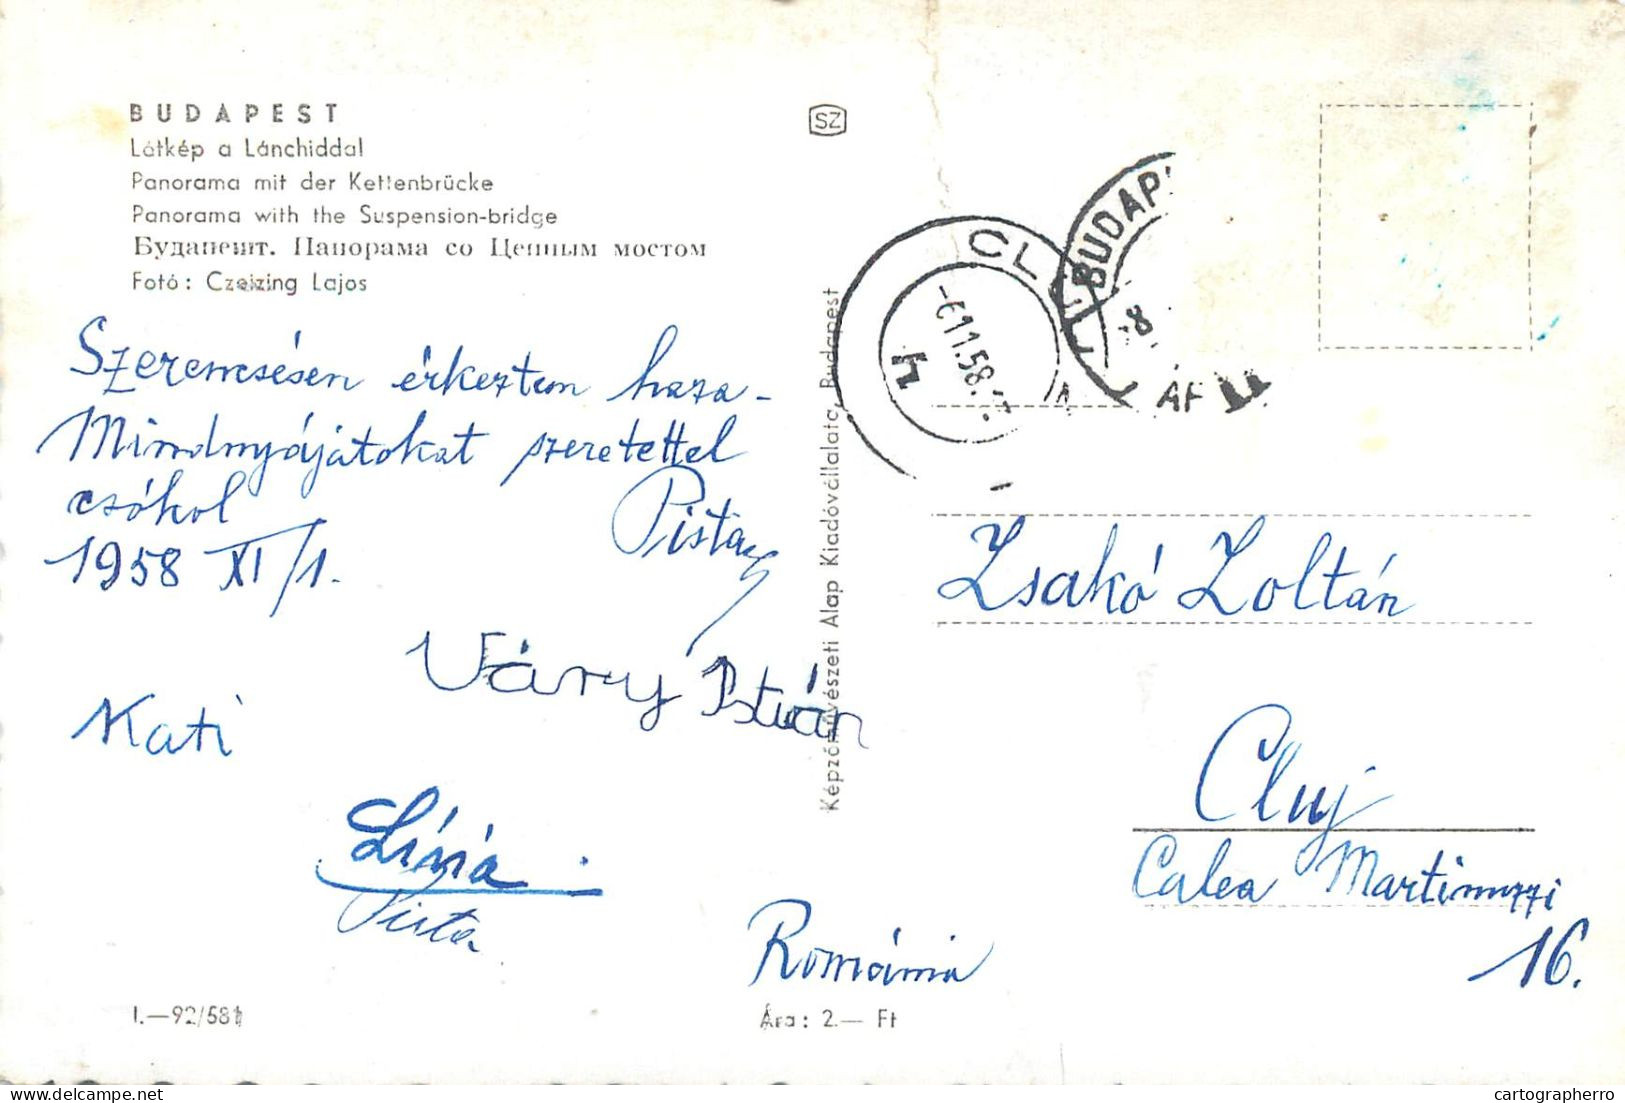 BUDAPEST
Látkép a Lánchiddal
Panorama mit der Kettenbrücke
Panorama with the Suspension-bridge
Будапешт. Панорама со Цепным мостом
Fotó: Czeizing Lajos
Szerencsésen érkeztem haza-
Mindnyájatokat szeretettel
csókol
Pista
1958 XI/1.
Váry István
Kati
Lívia
Pista
I.—92/581
Ára: 2.— Ft
SZ
Képzőművészeti Alap Kiadóvállalata, Budapest
CLUJ
-611.58.
BUDAP
8
Zsakó Zoltán
Cluj
Calea Martinuzzi
16.
Románia
delcampe.net
cartographerro